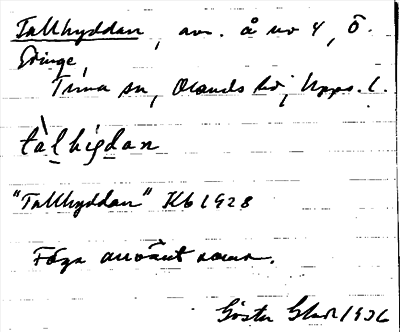 Tallhyddan, avs. å nr 4, Ö.
Edinge,
Tuna sn, Olands hd, Upps. l.
tàlhìgdan
"Tallhyddan" Kb 1928
Föga använt namn.
Gösta 1936